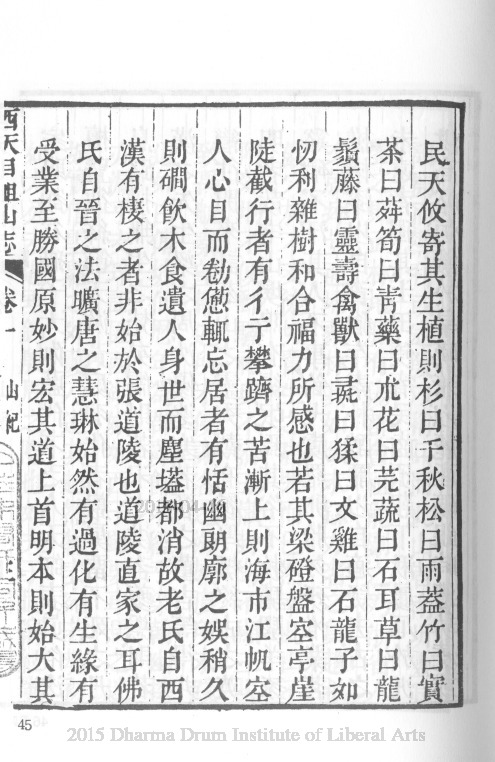 民天攸寄其生植則杉曰千秋松曰雨葢竹曰實
茶曰荈筍曰靑藥曰朮花曰芫蔬曰石耳草曰龍
鬚藤曰靈壽禽獸曰曰猱曰文雞曰石龍子如
忉利雜樹和合福力所感也若其梁磴盤空亭崖
陡截行者有彳亍攀躋之苦漸上則海市江帆空
人心目而勌憊輒忘居者有恬幽朗廓之娛稍久
則磵飲木食遺人身世而塵壒都消故老氏自西
漢有棲之者非始於張道陵也道陵直家之耳佛
氏自晉之法曠唐之慧琳始然有過化有生緣有
受業至勝國原妙則宏其道上首明本則始大其
西天目祖山志 卷一 山紀
45
2015 Dharma Drum Institute of Liberal Arts